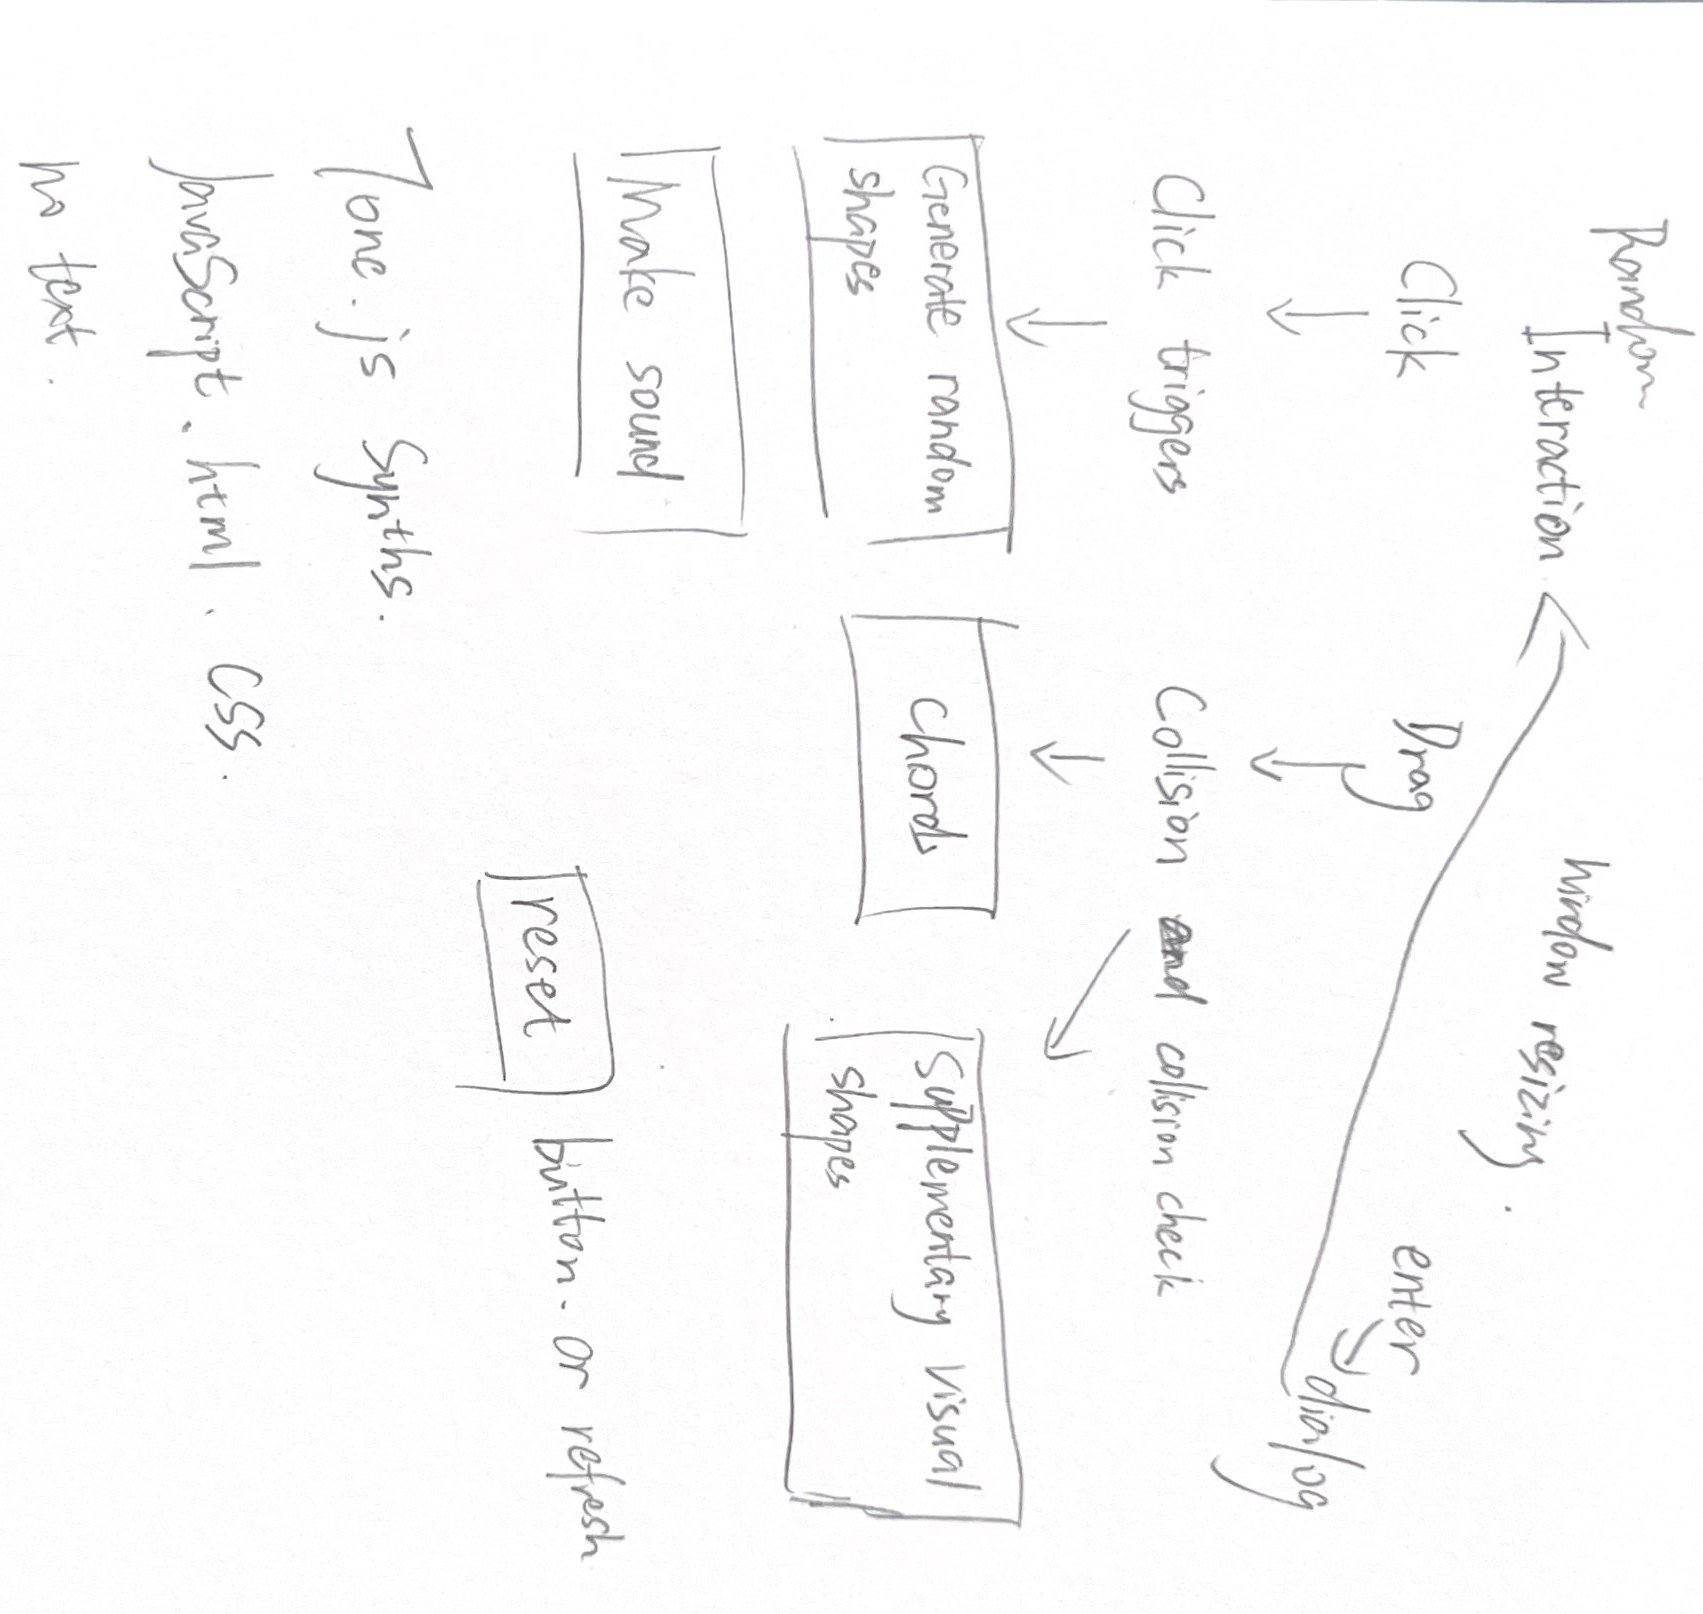 Random
Interaction
window resizing.
Click
Drag
enter
dialog
Click triggers
Collision and collision check
Generate random
shapes
Chords
Supplementary visual
shapes
Make sound
reset
button. or refresh
Tone.js Synths.
JavaScript. html. CSS.
no text.